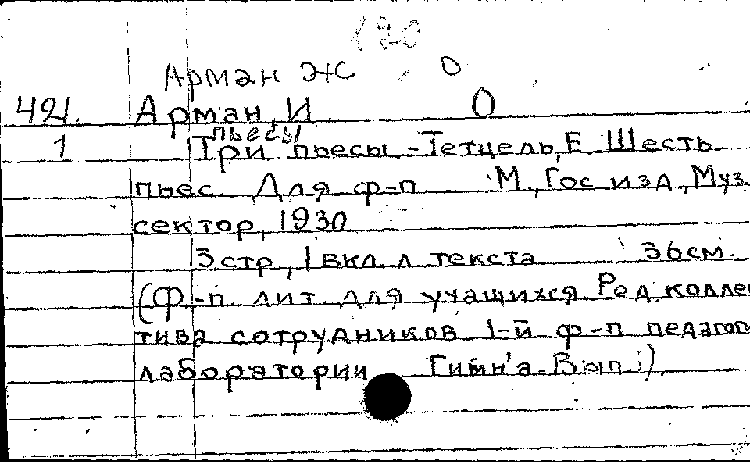 120
Арман Ж О
421. Арман, И О
пьесы
1 Три пьесы - Тетцель, Е. Шесть
пьес Для ф-п М., Гос изд, Муз
сектор, 1930
3 стр, 1 вкл. л текста 36см.
(Ф-п. лит для учащихся Ред коллек
тива сотрудников 1-й ф-п педагог
лаборатории Вып 1)